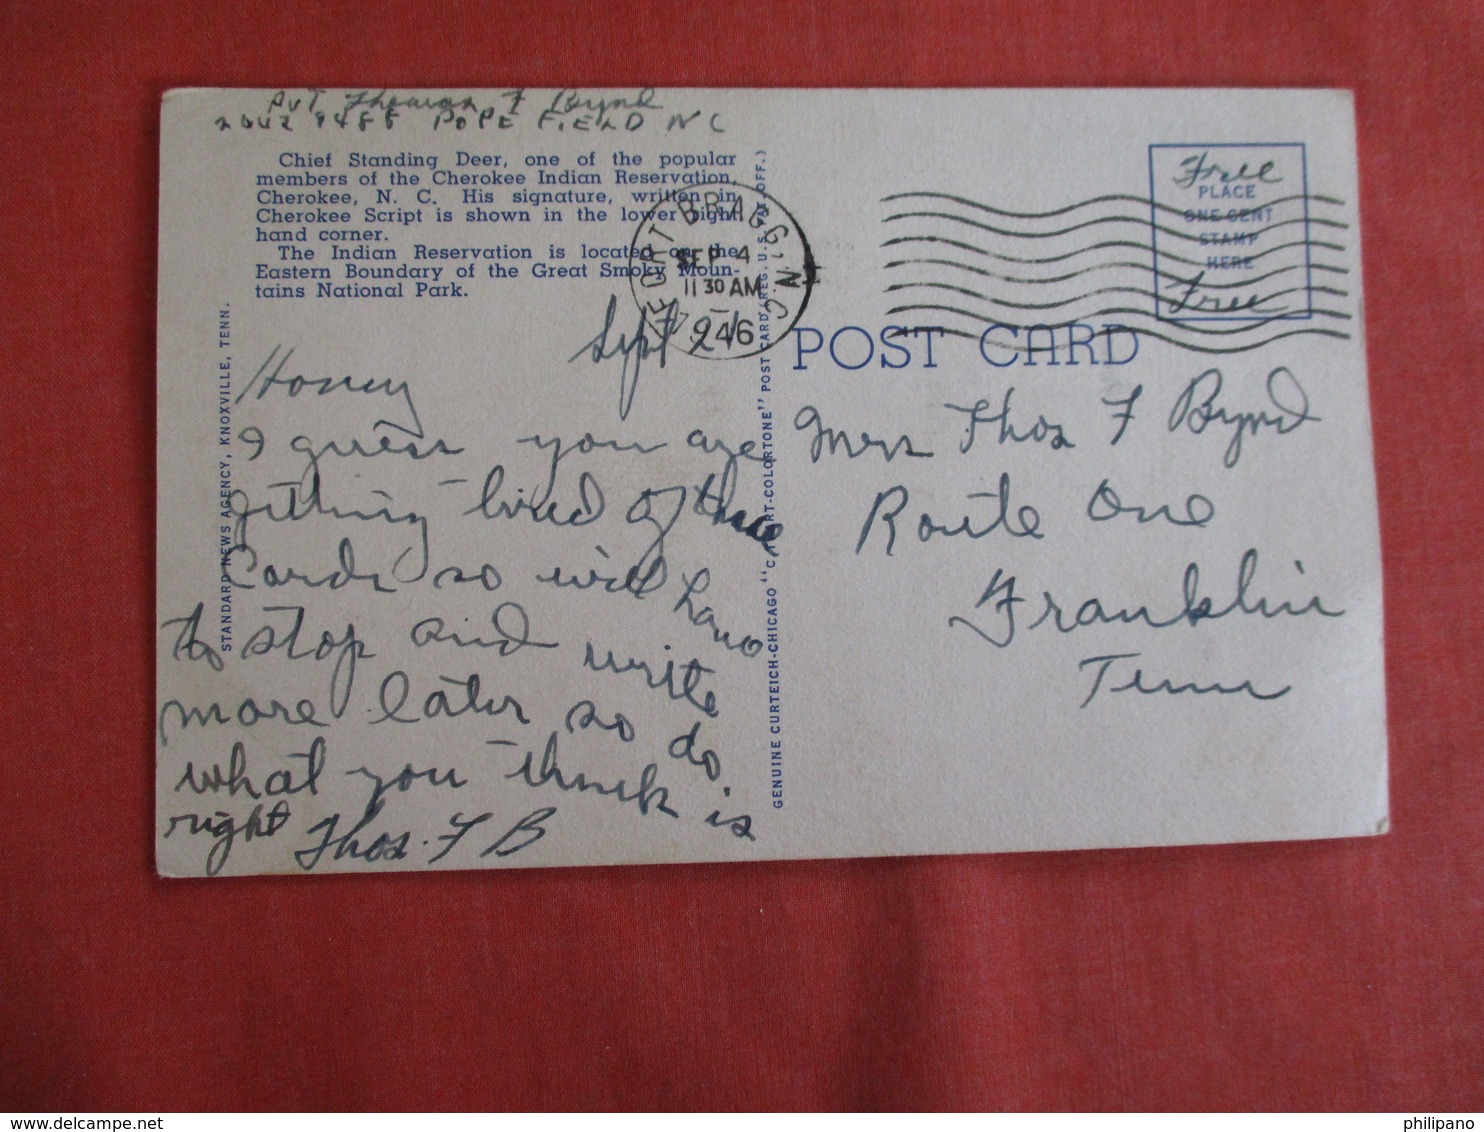 Pvt Thomas F Byrd
POPE FIELD N C
Chief Standing Deer, one of the popular
members of the Cherokee Indian Reservation,
Cherokee, N. C. His signature, written in
Cherokee Script is shown in the lower right
hand corner.
The Indian Reservation is located on the
Eastern Boundary of the Great Smoky Moun-
tains National Park.
STANDARD NEWS AGENCY, KNOXVILLE, TENN.
Sept
Honey
I guess you are
getting tired of these
Cards so will have
to stop and write
more later so do
what you think is
right Thos. F B
GENUINE CURTEICH-CHICAGO "C. T. ART-COLORTONE" POST CARD (REG. U.S. PAT. OFF.)
FORT BRAGG, N.C.
SEP 4
11 30 AM
1946
Free
PLACE
ONE CENT
STAMP
HERE
Free
POST CARD
Mrs Thos F Byrd
Route One
Franklin
Tenn
delcampe.net
philipano